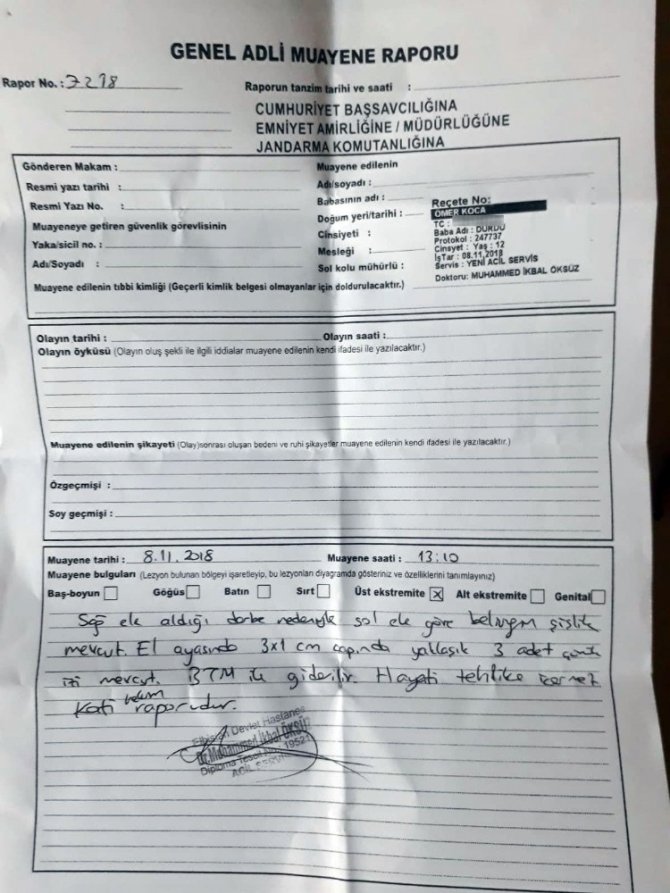 GENEL ADLİ MUAYENE RAPORU
Rapor No.: 7218
Raporun tanzim tarihi ve saati :
CUMHURİYET BAŞSAVCILIĞINA
EMNİYET AMİRLİĞİNE / MÜDÜRLÜĞÜNE
JANDARMA KOMUTANLIĞINA
Gönderen Makam :
Resmi yazı tarihi :
Resmi Yazı No. :
Muayeneye getiren güvenlik görevlisinin
Yaka/sicil no. :
Adı/Soyadı :
Muayene edilenin
Adı/soyadı :
Babasının adı :
Doğum yeri/tarihi :
Cinsiyeti :
Mesleği :
Sol kolu mühürlü :
Reçete No:
ÖMER KOCA
TC :
Baba Adı : DURDU
Protokol : 247737
Cinsyet : Yaş : 12
İşTar : 08.11.2018
Servis : YENİ ACİL SERVİS
Doktoru: MUHAMMED İKBAL ÖKSÜZ
Muayene edilenin tıbbi kimliği (Geçerli kimlik belgesi olmayanlar için doldurulacaktır.)
Olayın tarihi : Olayın saati :
Olayın öyküsü (Olayın oluş şekli ile ilgili iddialar muayene edilenin kendi ifadesi ile yazılacaktır.)
Muayene edilenin şikayeti (Olay)sonrası oluşan bedeni ve ruhi şikayetler muayene edilenin kendi ifadesi ile yazılacaktır.)
Özgeçmişi :
Soy geçmişi :
Muayene tarihi : 8.11.2018 Muayene saati : 13:10
Muayene bulguları (Lezyon bulunan bölgeyi işaretleyip, bu lezyonları diyagramda gösteriniz ve özelliklerini tanımlayınız)
Baş-boyun Göğüs Batın Sırt Üst ekstremite X Alt ekstremite Genital
Sağ ele aldığı darbe nedeniyle sol ele göre belirgin şişlik
mevcut. El ayasında 3x1 cm çapında yaklaşık 3 adet
izi mevcut. BTM ile giderilir. Hayati tehlike içermez
Kati hekim raporudur.
Devlet Hastanesi
Dr. Muhammed İkbal ÖKSÜZ
Diploma Tescil No: 19521
ACİL SERVİS